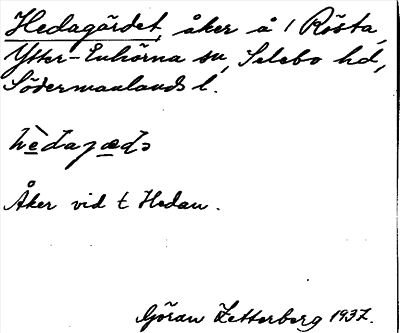 Hedagärdet, åker å 1 Rösta,
Ytter-Enhörna sn, Selebo hd,
Södermanlands l.
hèdaɟædɔ
Åker vid t Hedan.
Göran Zetterberg 1937.